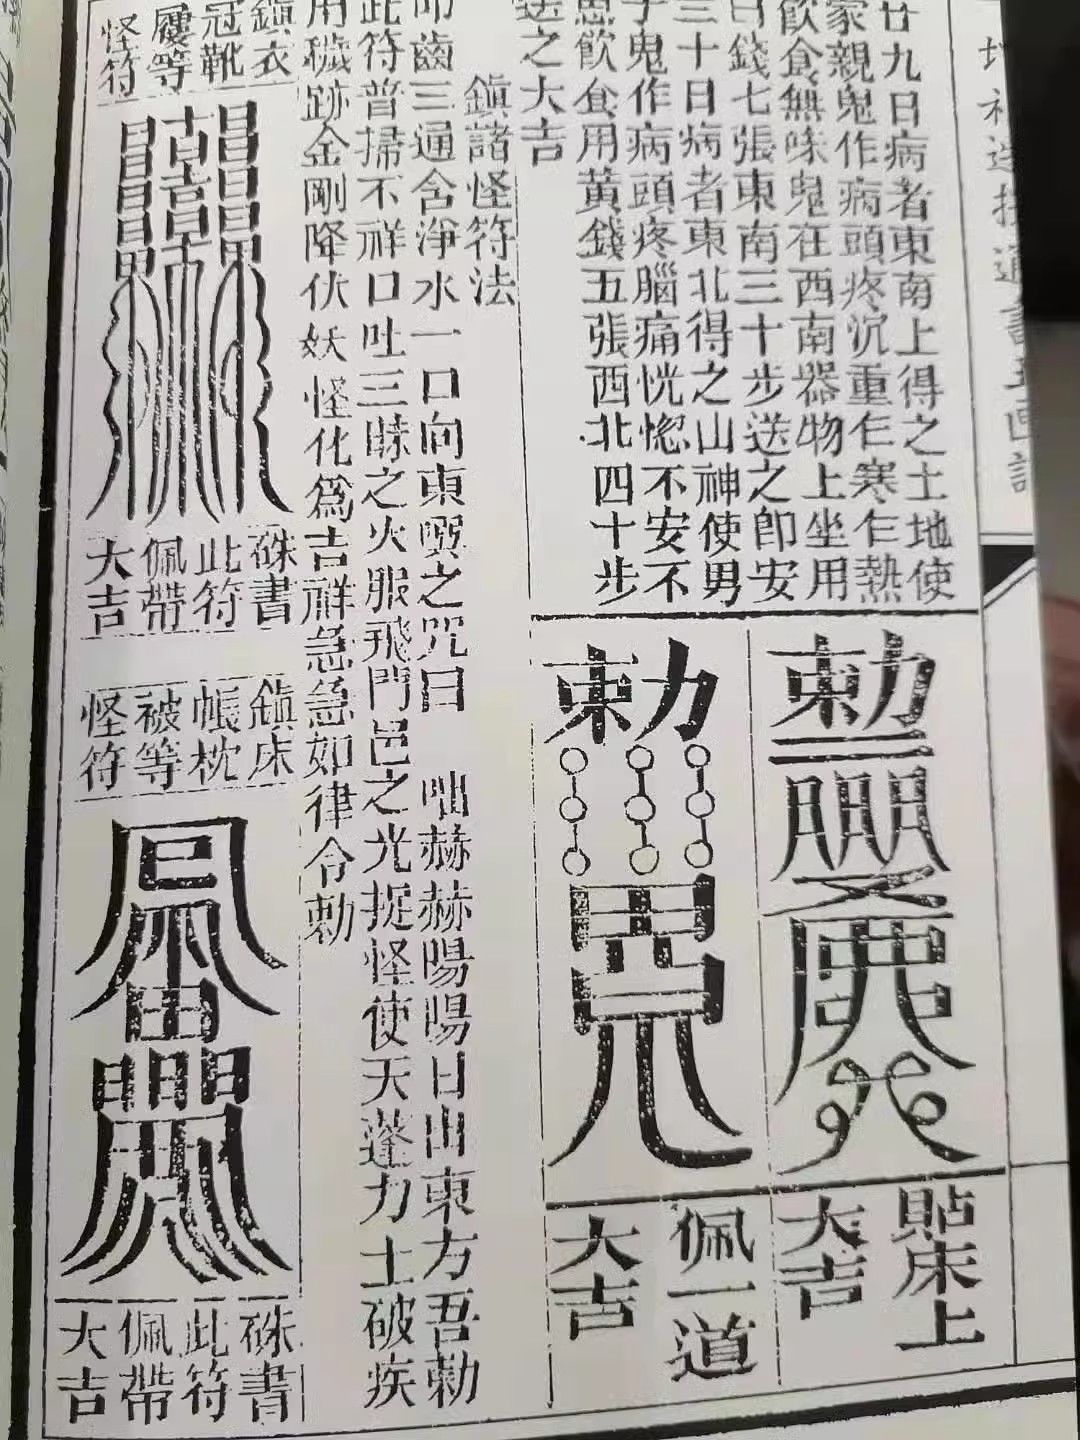 廿九日病者東南上得之土地使
家親鬼作病頭疼沉重乍寒乍熱
飲食無味鬼在西南器物上坐用
白錢七張東南三十步送之即安
三十日病者東北得之山神使男
子鬼作病頭疼腦痛恍惚不安不
思飲食用黃錢五張西北四十步
送之大吉
勅
貼床上
大吉
勅
佩一道
大吉
鎮諸怪符法
叩齒三通含淨水一口向東噀之咒曰 咄赫赫陽陽日出東方吾勅
此符普掃不祥口吐三昧之火服飛門邑之光捉怪使天蓬力士破疾
用穢跡金剛降伏妖怪化為吉祥急急如律令勅
鎮衣
冠靴
屨等
怪符
硃書
此符
佩帶
大吉
鎮床
帳枕
被等
怪符
硃書
此符
佩帶
大吉